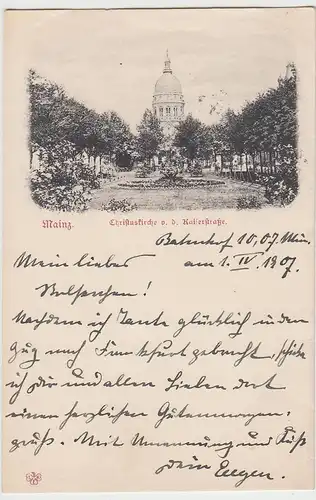 Mainz. Christuskirche v. d. Kaiserstraße.
Bahnhof 10,07 Min.
Mein liebes am 1. IV 1907.
!
Nachdem ich Tante glücklich in den
Zug nach Frankfurt gebracht, schicke
ich Dir und allen Lieben dort
einen herzlichen Gutenmorgen-
gruß. Mit Umarmung und Kuß
Dein Eugen.